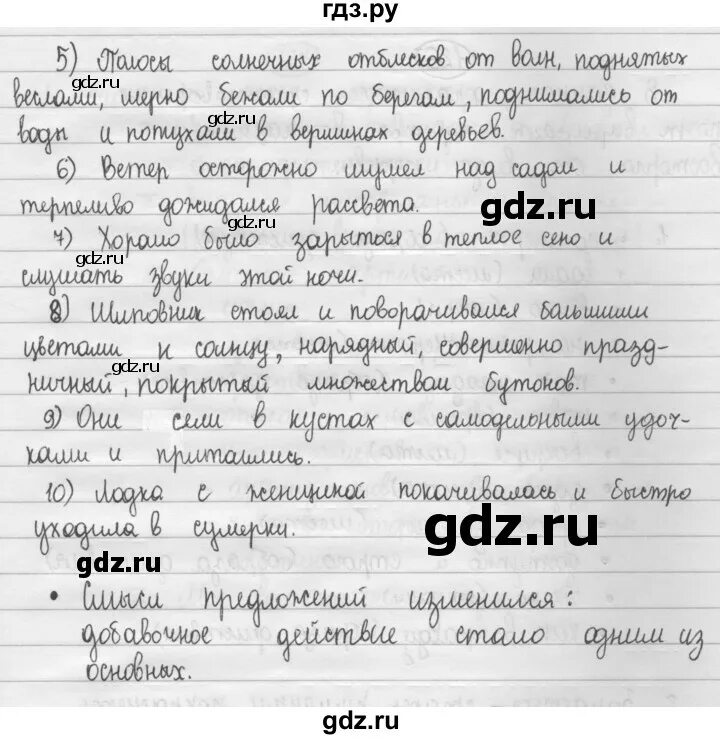 гдз.ру
5) Полосы солнечных отблесков от волн, поднятых
gdz.ru gdz.ru
веслами, мерно бежали по берегам, поднимались от
воды и потухали в вершинах деревьев.
6) Ветер осторожно шумел над садом и
терпеливо дожидался рассвета. gdz.ru
7) Хорошо было зарыться в теплое сено и
gdz.ru
слушать звуки этой ночи.
8) Шиповник стоял и поворачивался большими
цветами к солнцу, нарядный, совершенно празд-
gdz.ru
ничный, покрытый множеством бутонов.
9) Они сели в кустах с самодельными удоч-
ками и притаились.
10) Лодка с женщиной покачивалась и быстро
уходила в сумерки. gdz.ru
gdz.ru
• Смысл предложений изменился:
gdz.ru
добавочное действие стало одним из
основных.
gdz.ru